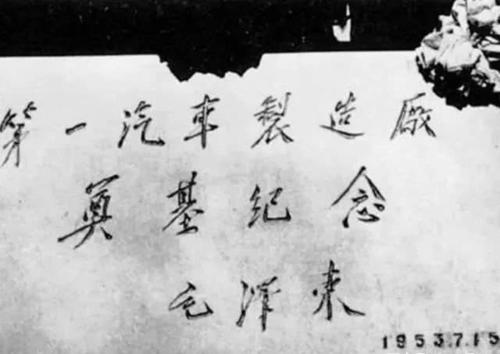 第一汽車製造厰
奠基纪念
毛泽东
1953.7.15